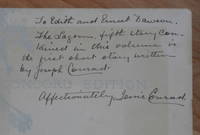 To Edith and Ernest Dawson.
The Lagoon, fifth story con-
tained in this volume is
the first short story written
by Joseph Conrad
Affectionately Jessie Conrad.